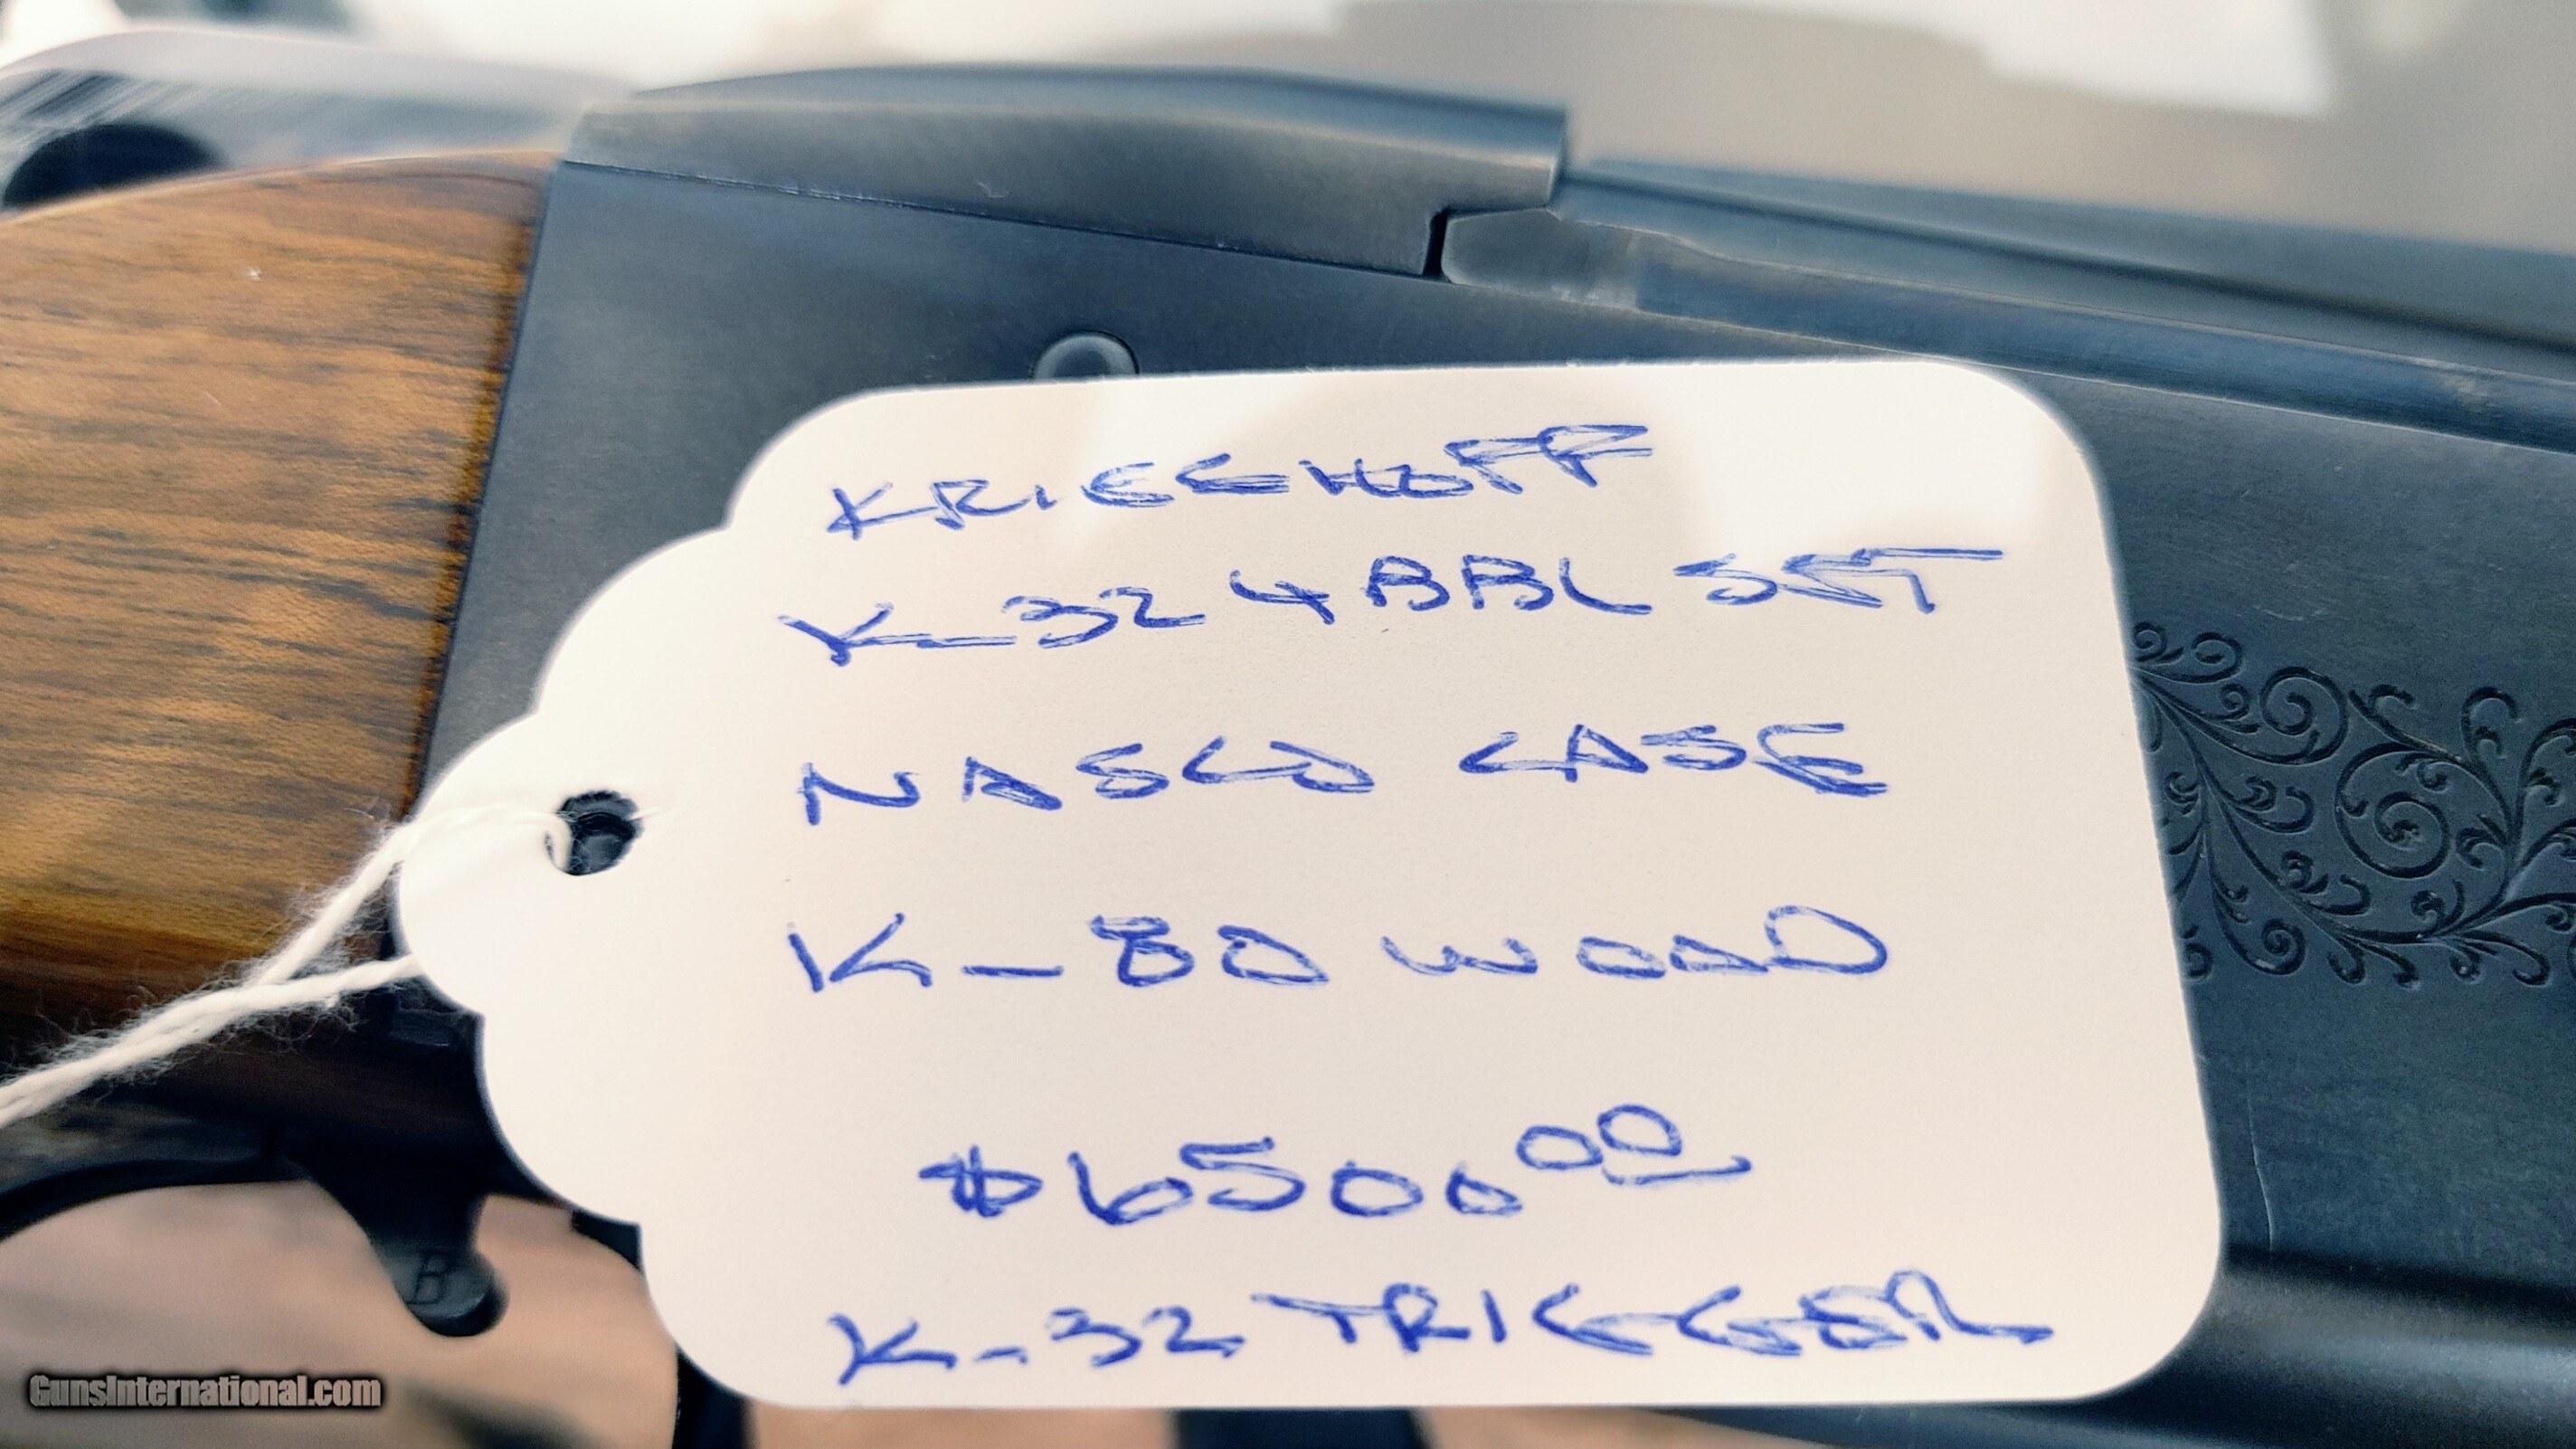 KRIEGHOFF
K-32 4 BBL SET
NASCO CASE
K-80 WOOD
$6500.00
K-32 TRIGGER
B
GunsInternational.com